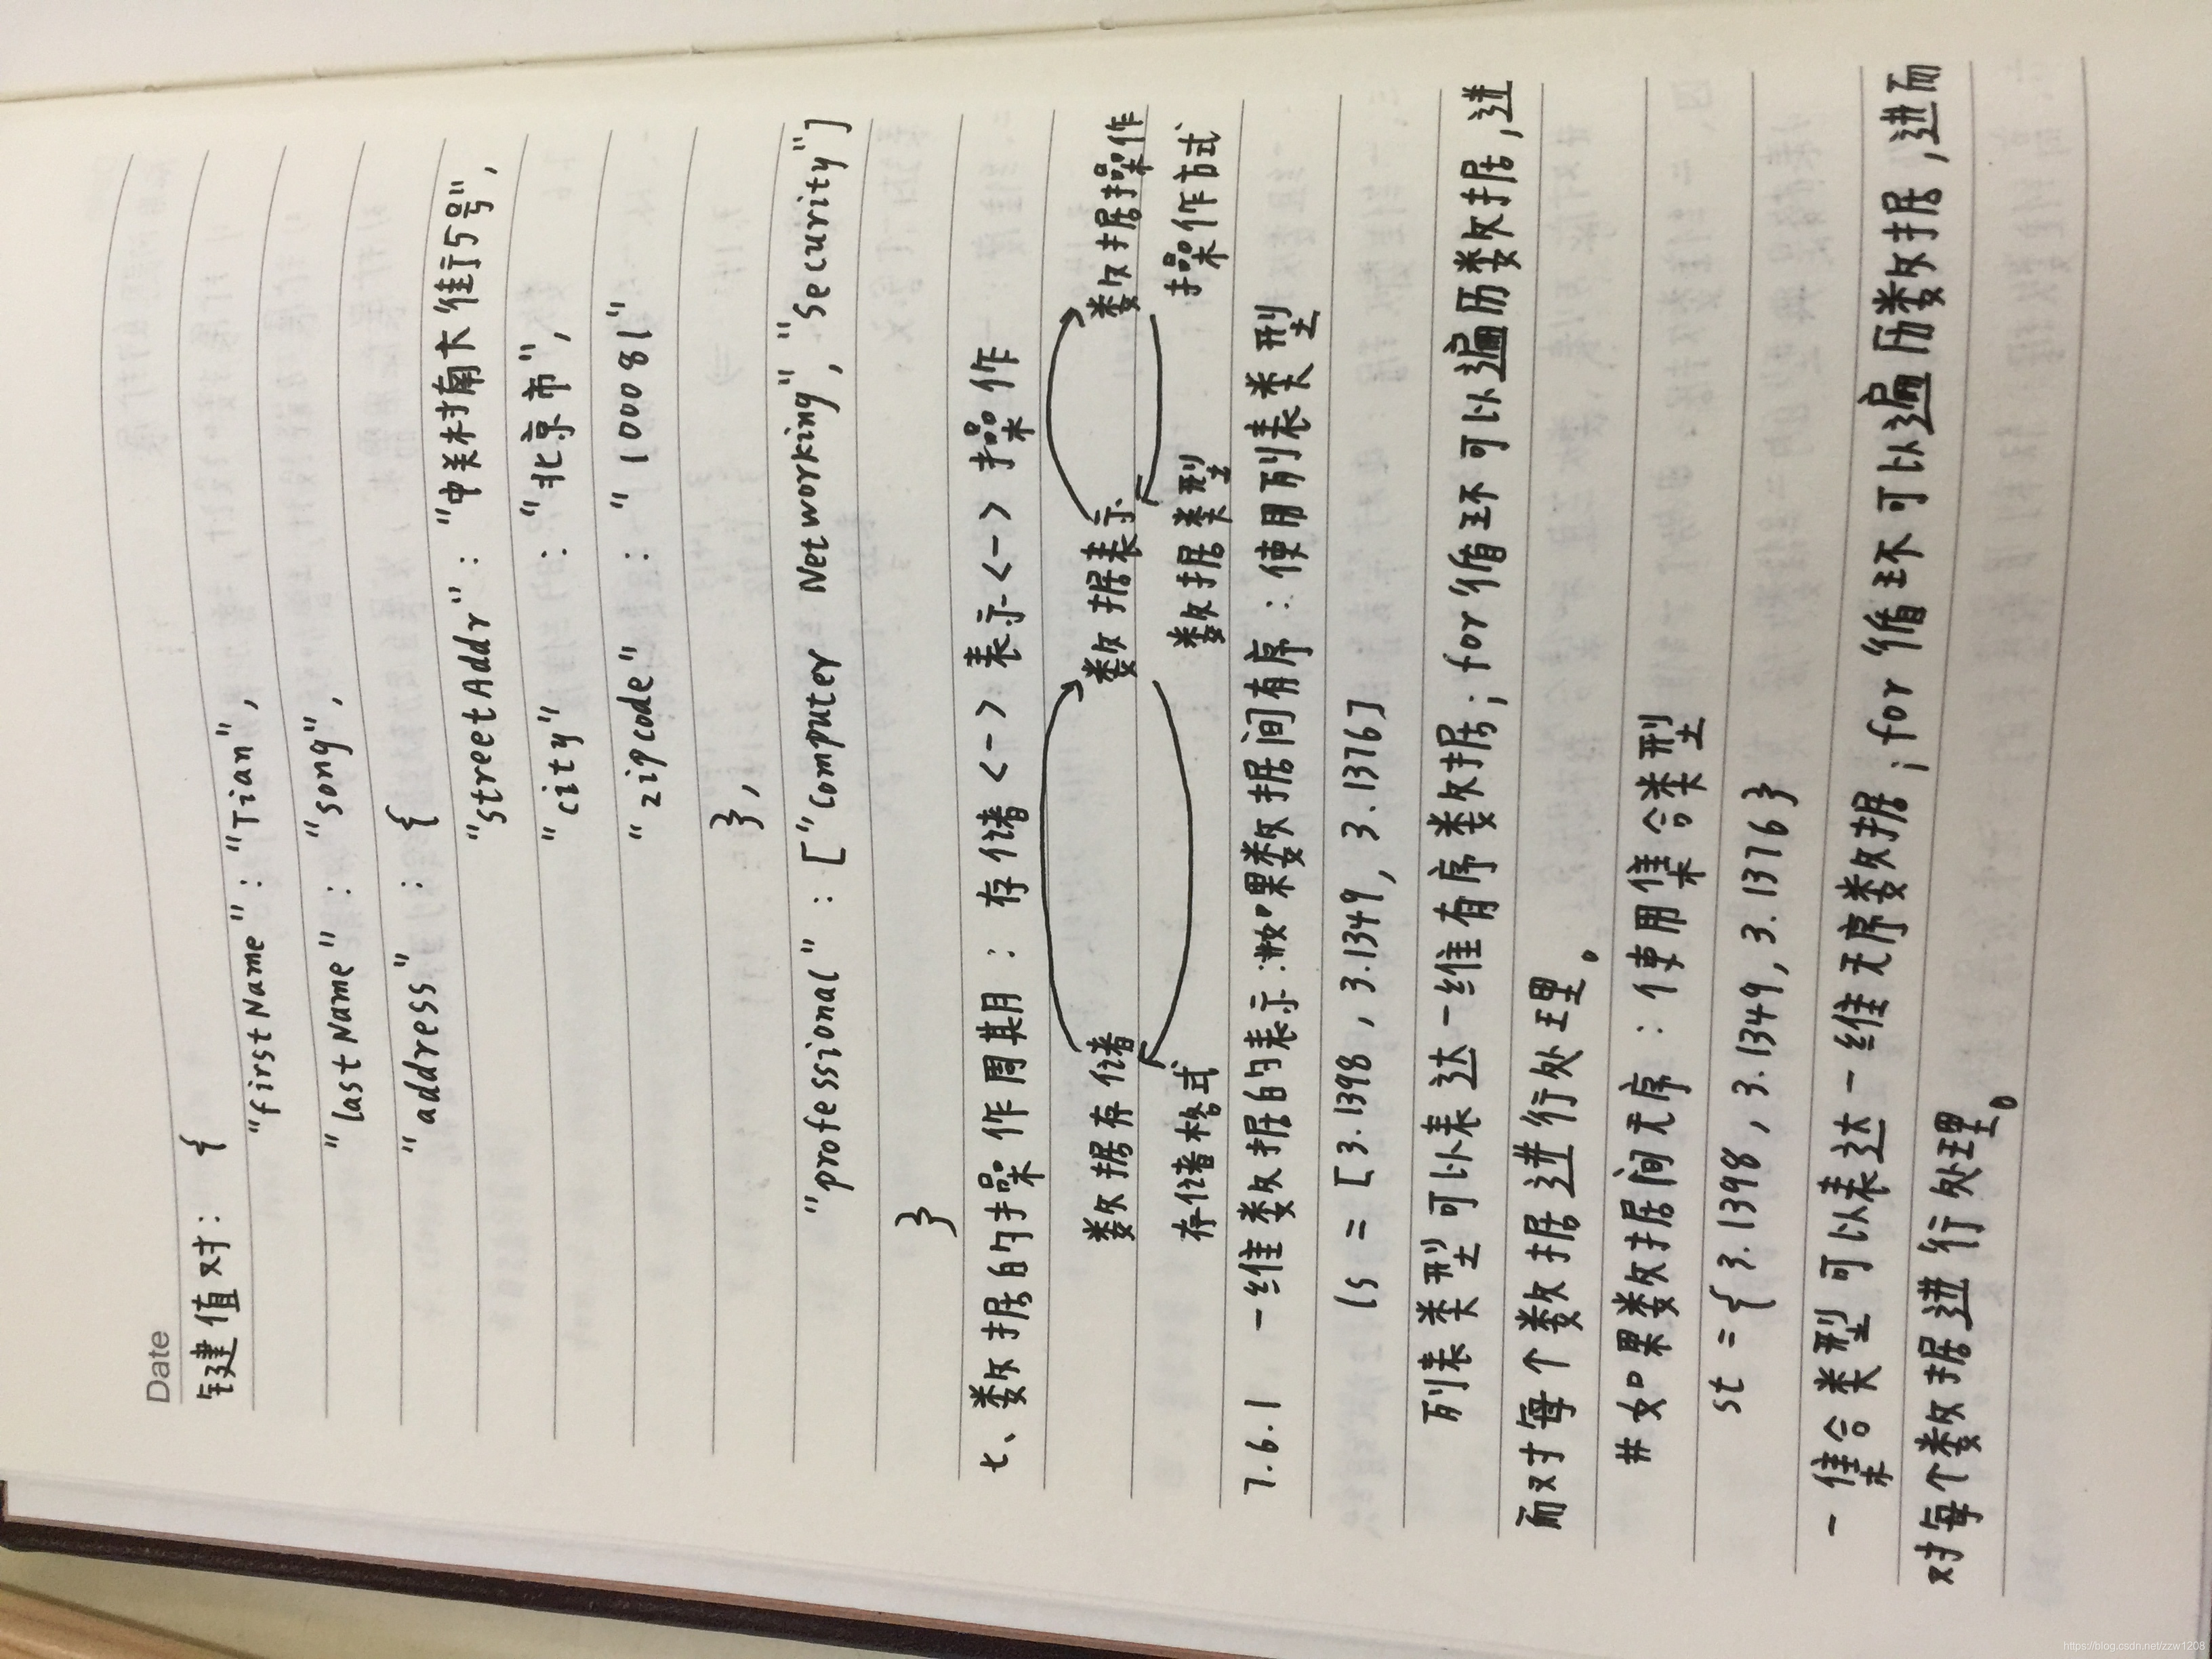 Date
键值对: {
"firstName" : "Tian",
"lastName" : "song",
"address" : {
"streetAddr" : "中关村南大街5号",
"city" : "北京市",
"zipcode" : "100081"
},
"professional" : ["Computer Networking", "Security"]
}
七、数据的操作周期 : 存储 <-> 表示 <-> 操作
数据存储 数据表示 数据操作
存储格式 数据类型 操作方式
7.6.1 一维数据的表示:如果数据间有序 : 使用列表类型
ls = [3.1398, 3.1349, 3.1376]
列表类型可以表达一维有序数据; for循环可以遍历数据,进
而对每个数据进行处理。
#如果数据间无序 : 使用集合类型
st = {3.1398, 3.1349, 3.1376}
- 集合类型可以表达一维无序数据; for循环可以遍历数据,进而
对每个数据进行处理。
https://blog.csdn.net/zzw1208